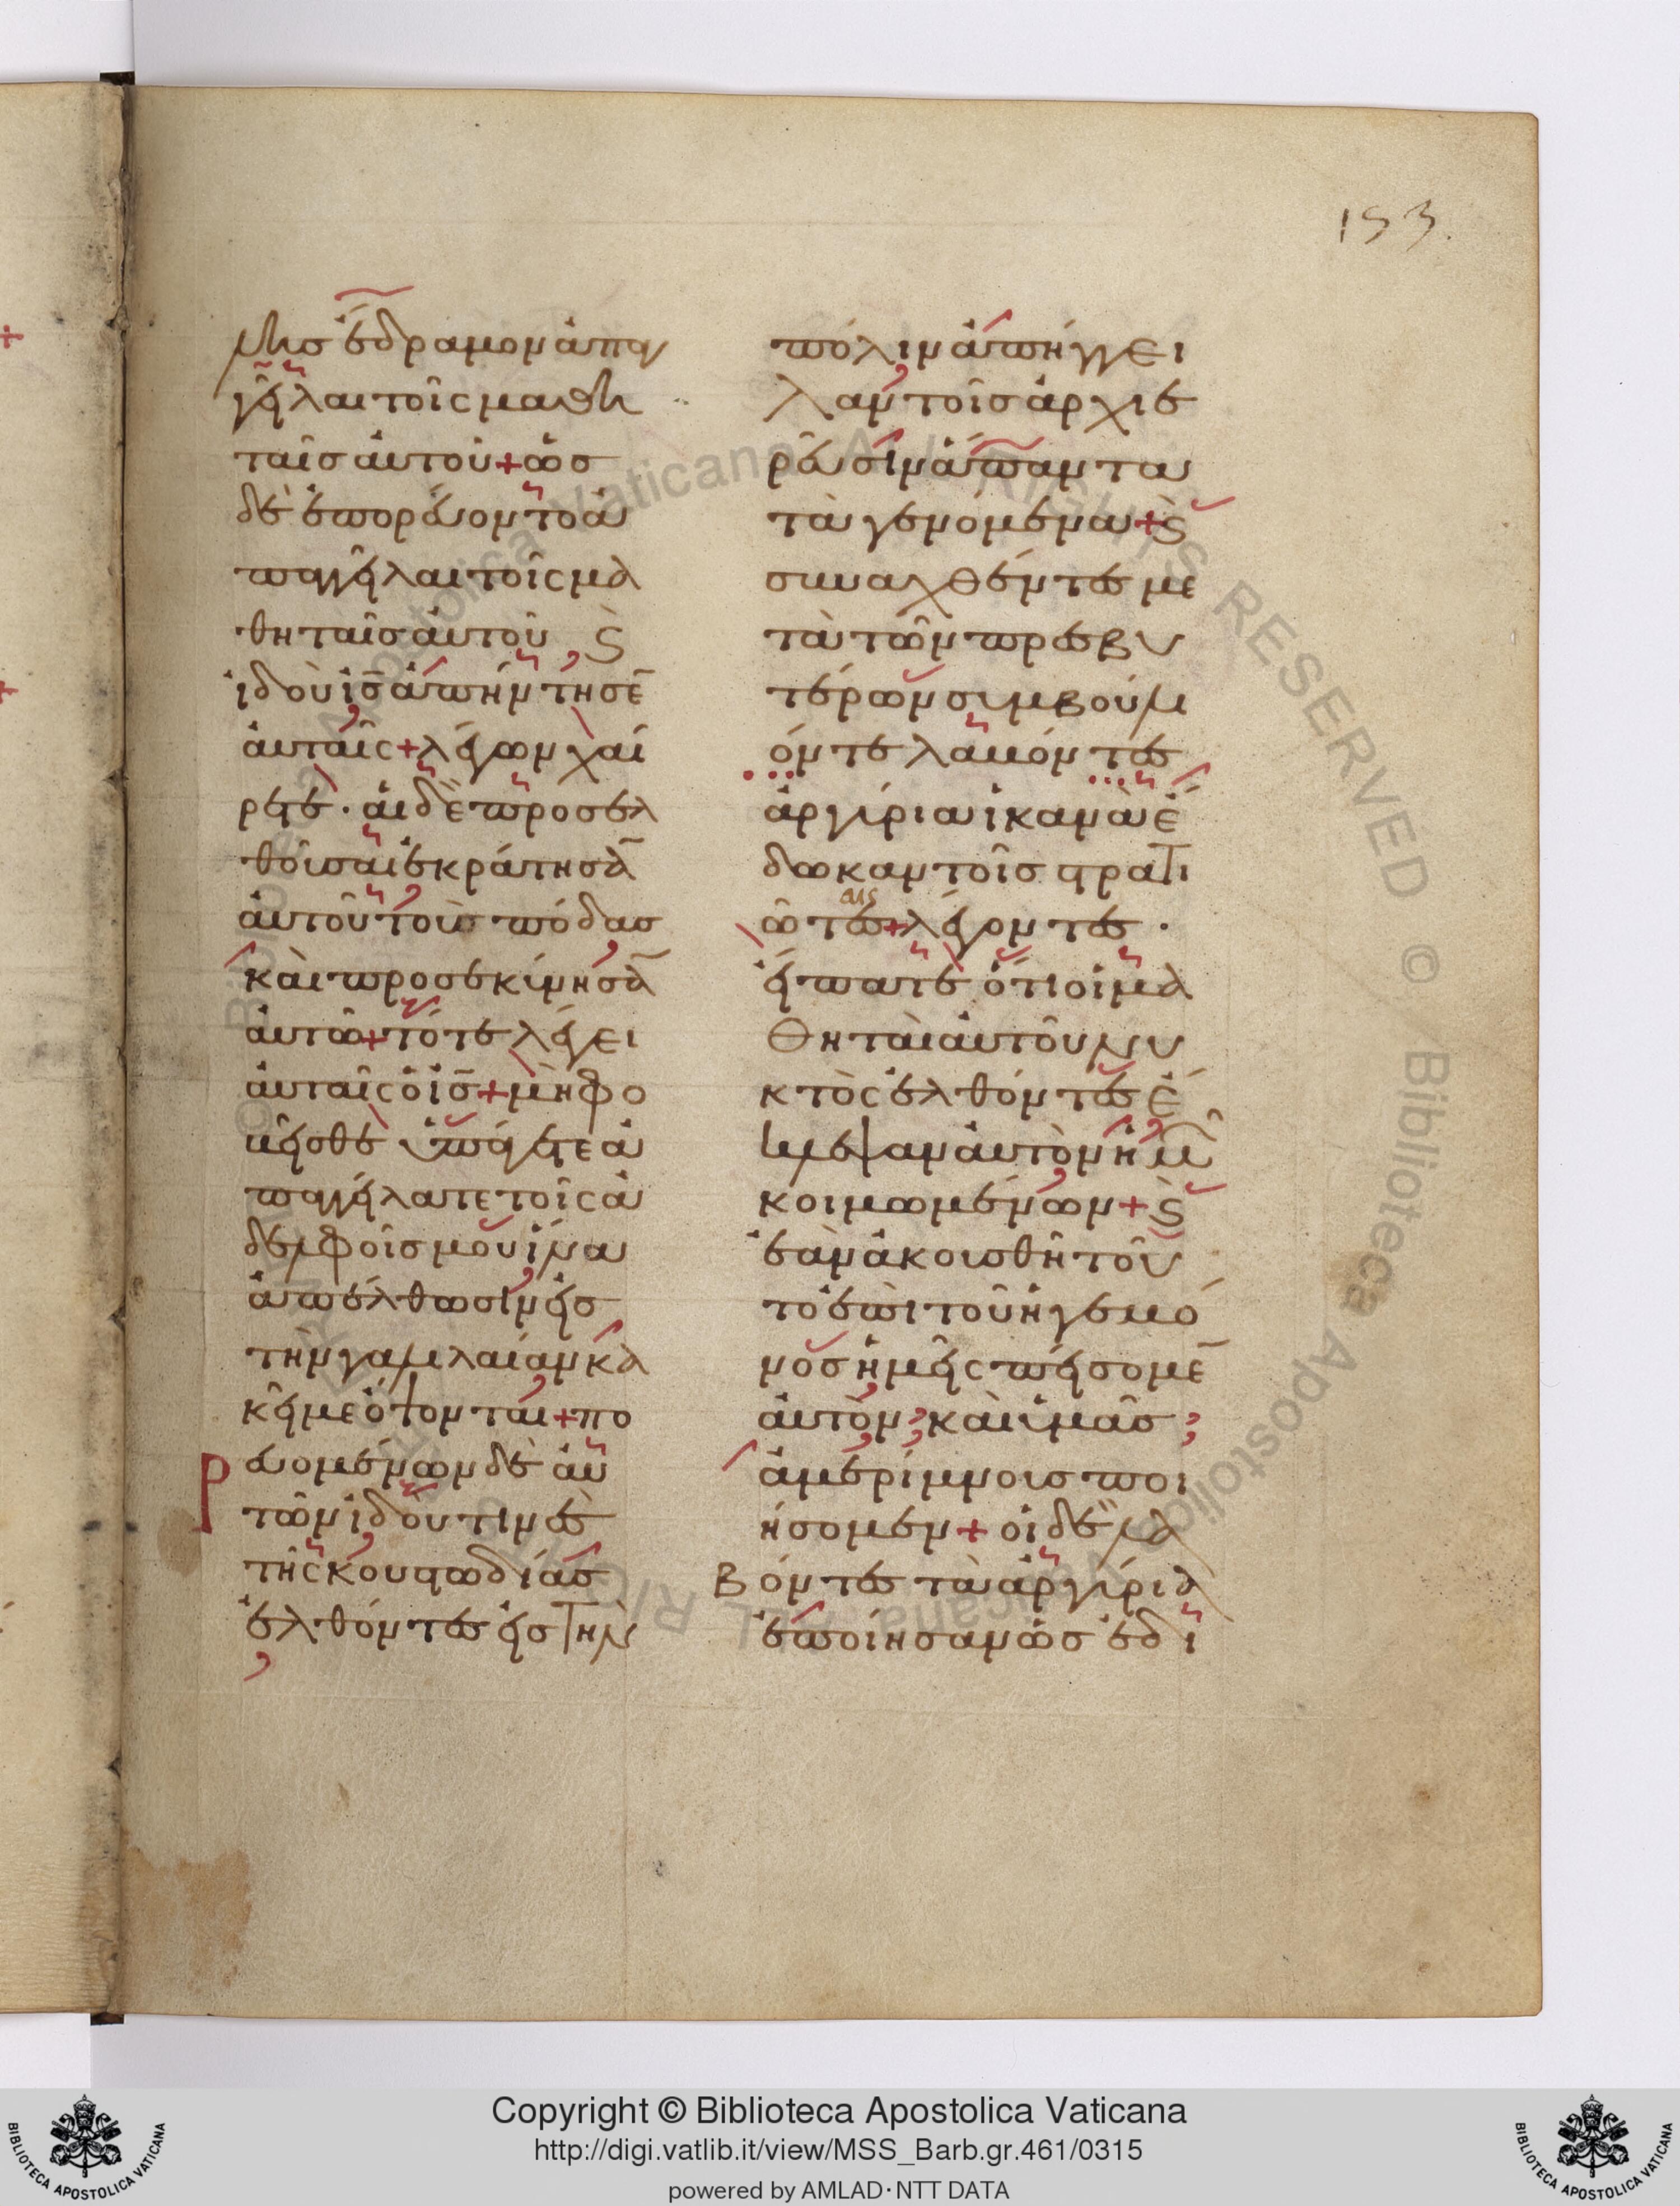 153.
λης ἔδραμον ἀπαγ
γεῖλαι τοῖς μαθη
ταῖς αὐτοῦ + ὡς
δὲ ἐπορεύοντο ἀ
παγγεῖλαι τοῖς μα
θηταῖς αὐτοῦ, ϗ
ἰδοὺ ις ἀπήντησε̄
αὐταῖς + λέγων χαί
ρετε · αἱ δὲ προσελ
θοῦσαι ἐκράτησᾱ
αὐτοῦ τοὺς πόδας
καὶ προσεκίνησᾱ
αὐτῶ + τότε λέγει
αὐταῖς ὁ ις + μὴ φο
βεῖσθε ὑπάγετε ἀ
παγγείλατε τοῖς ἀ
δελφοῖς μου ἵνα
ἀπέλθωσιν εἰς
τὴν γαλιλαίαν κα
κεῖ με ὄψονται + πο
ρευομένων δὲ αὐ
τῶν ἰδού τινες
τῆς κουστωδίας
ἐλθόντες εἰς τὴν
πόλιν ἀπήγγει
λαν τοῖς ἀρχιε
ρεῦσιν ἅπαντα
τὰ γενόμενα + ϗ
συναχθέντες με
τὰ τῶν πρεσβυ
τέρων συμβούλι
όν τε λαβόντες
ἀργύρια ἱκανὰ ἔ
δωκαν τοῖς στρατι
ώταις + λέγοντες ·
εἴπατε ὅτι οἱ μα
θηταὶ αὐτοῦ νυ
κτὸς ἐλθόντες ἔ
κλεψαν αὐτὸν ἡμῶ̄
κοιμωμένων + ϗ
ἐὰν ἀκουσθῆ τοῦ
το ἐπὶ τοῦ ἡγεμό
νος ἡμεῖς πείσομε̄
αὐτόν, καὶ ὑμᾶς,
ἀμερίμνους ποι
ήσομεν + οἱ δὲ λα
βόντες τὰ ἀργύρια
ἐποίησαν ὡς ἐδι
Copyright © Biblioteca Apostolica Vaticana
http://digi.vatlib.it/view/MSS_Barb.gr.461/0315
powered by AMLAD·NTT DATA
BIBLIOTECA APOSTOLICA VATICANA
BIBLIOTECA APOSTOLICA VATICANA